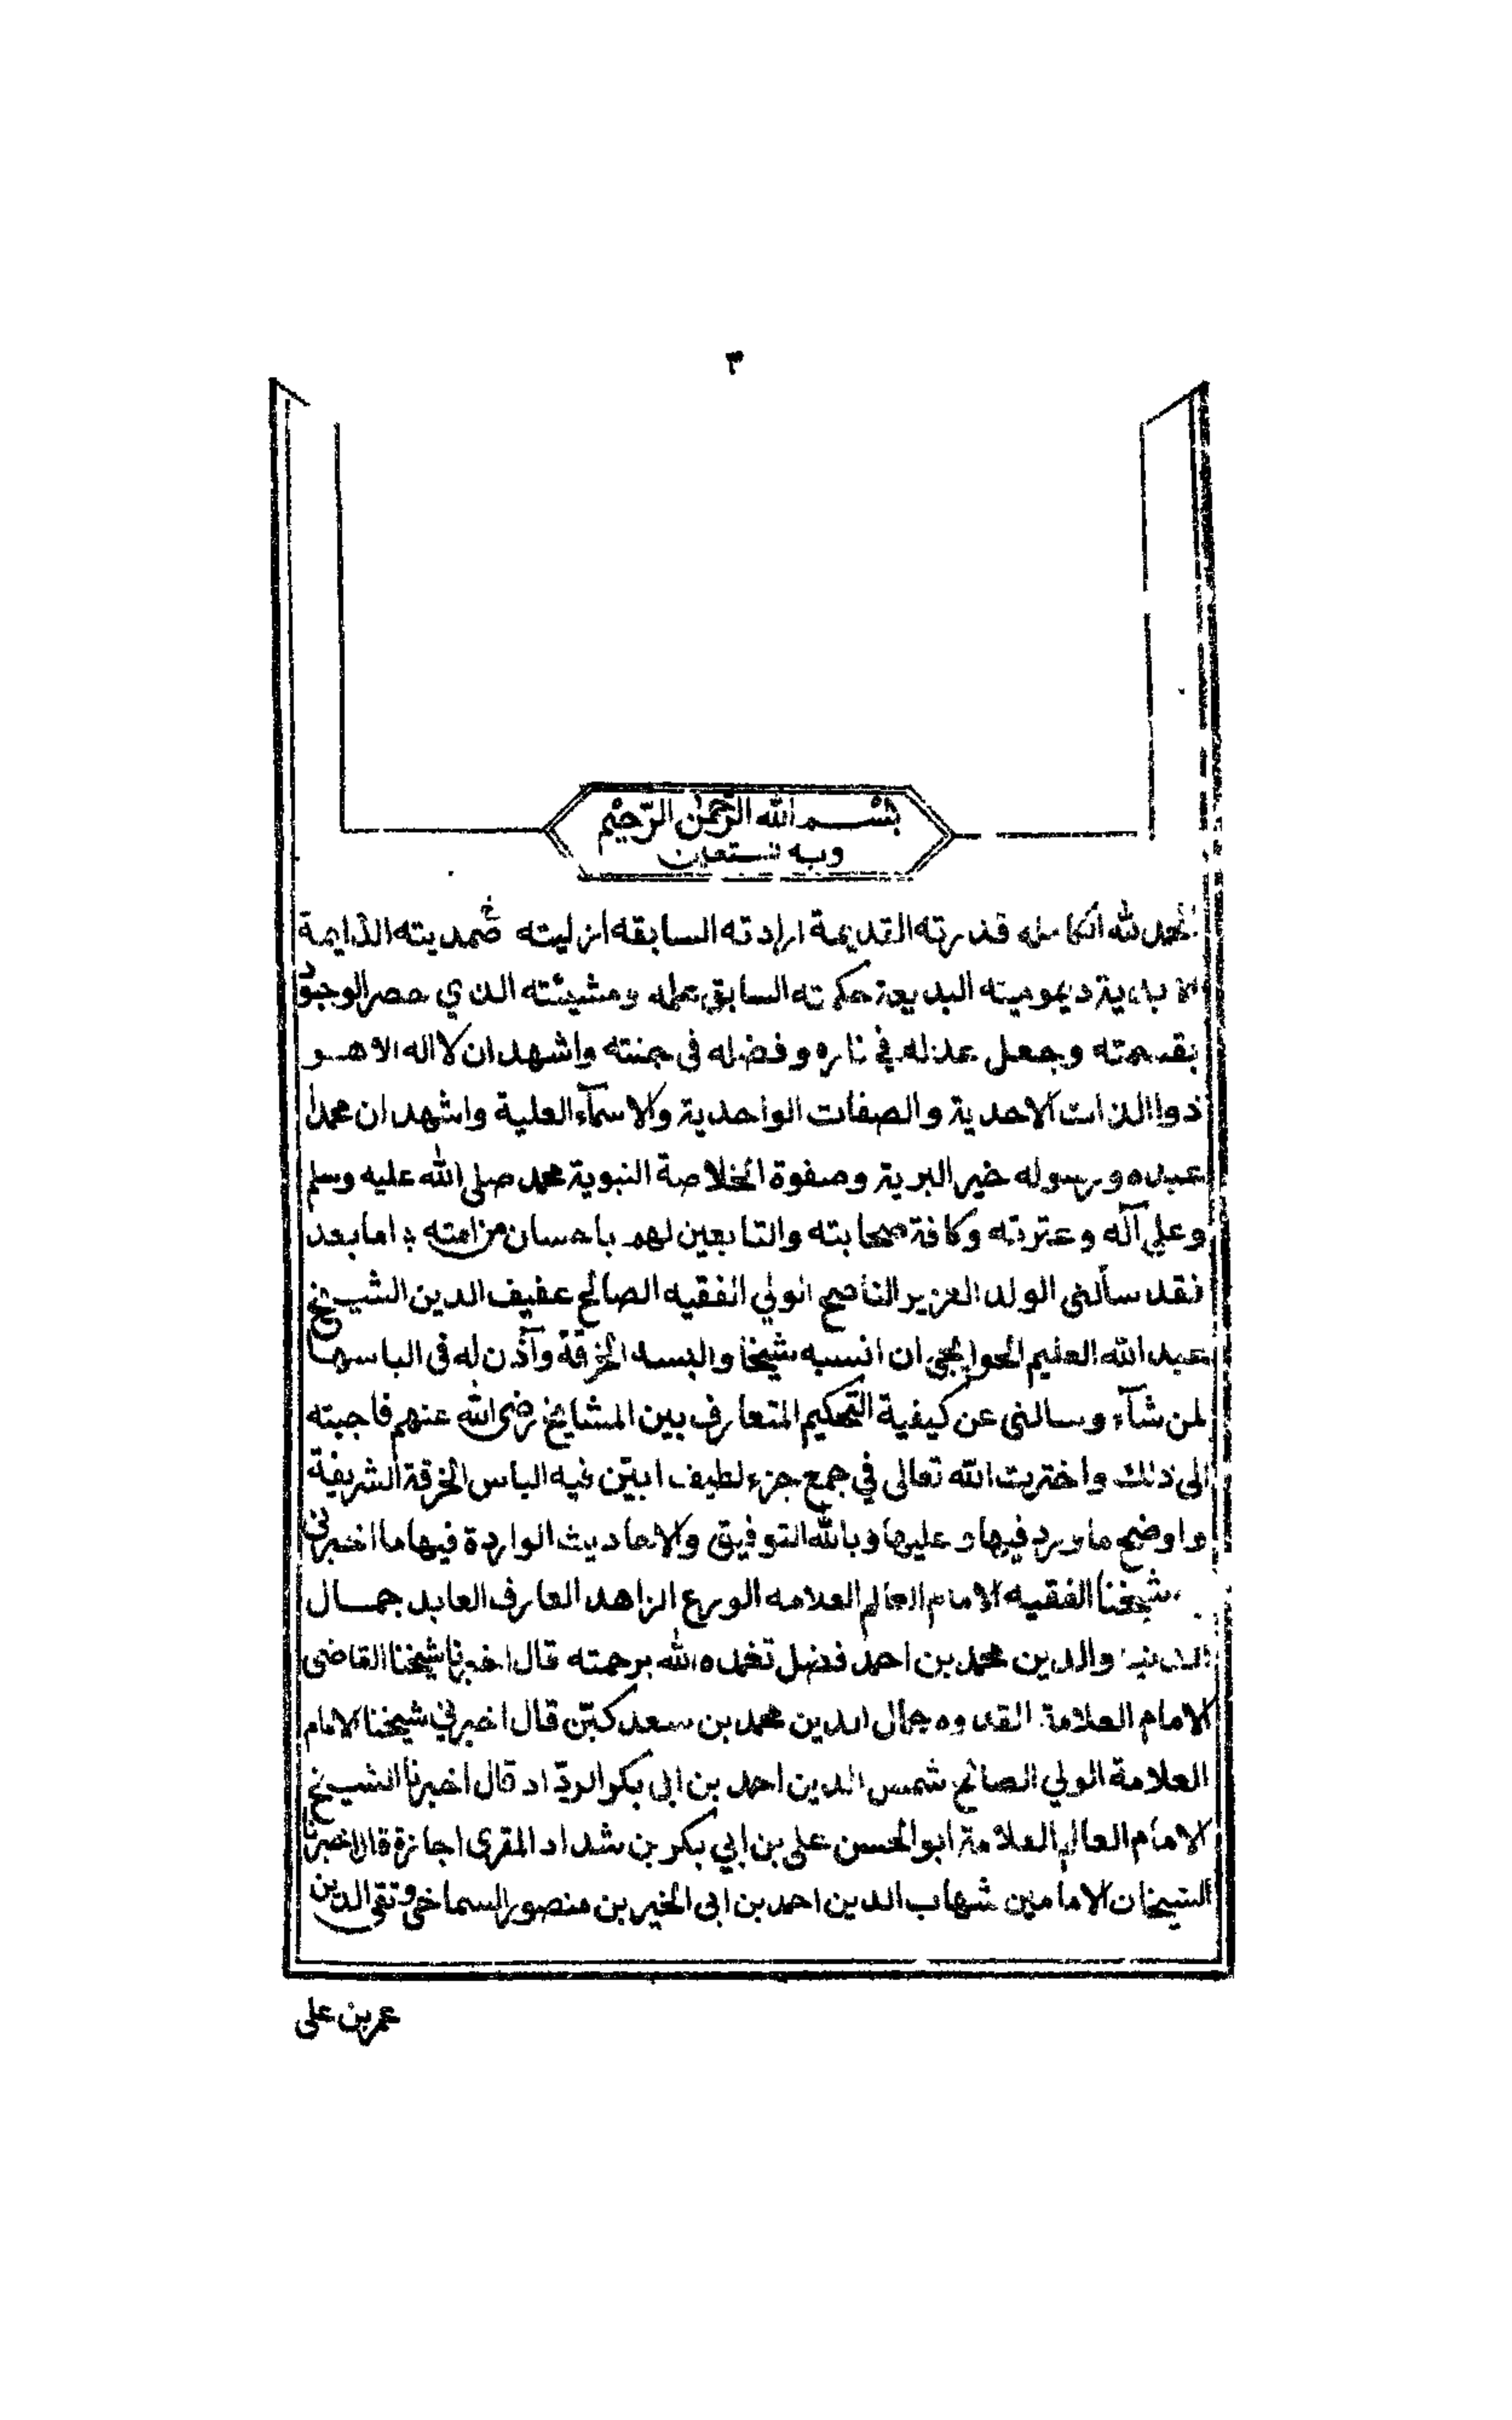 ٣
بسم الله الرحمن الرحيم
وبه نستعين
الحمد لله الكامله قدرته القديمة ارادته السابقه ازليته صمديته الدايمة
الابدية ديموميته البديعة حكمته السابق عمله ومشيئته الذي حصر الوجود
بقسمته وجعل عدله في ناره وفضله فى جنته واشهد ان لا اله الا هو
ذوا الذات الاحدية والصفات الواحدية والاسمآء العلية واشهد ان محمداً
عبده ورسوله خير البرية وصفوة الخلاصة النبوية محمد صلى الله عليه وسلم
وعلى آله وعترته وكافة صحابته والتابعين لهم باحسان من امته ؛ اما بعد
فقد سألنى الولد العزيز الناصح الولي الفقيه الصالح عفيف الدين الشيخ
عبد الله العليم الحوايجي ان انسبه شيخا والبسه الخرقة وآذن له فى الباسها
لمن شآء وسالنى عن كيفية التحكيم المتعارف بين المشايخ رضى الله عنهم فاجبته
الى ذلك واخترت الله تعالى في جمع جزء لطيف ابيّن فيه الباس الخرقة الشريفة
واوضح ما ورد فيها وعليها وبالله التوفيق والاحاديث الواردة فيها ما اخبرنى
شيخنا الفقيه الامام العالم العلامه الورع الزاهد العارف العابد جمال
الدنيا والدين محمد بن احمد فضل تغمده الله برحمته قال اخبرنا شيخنا القاضى
الامام العلامة القدوه جمال الدين محمد بن سعد كبّن قال اخبرني شيخنا الامام
العلامة الولي الصالح شمس الدين احمد بن ابى بكر الردّاد قال اخبرنا الشيخ
الامام العالم العلامة ابو الحسن على بن ابي بكر بن شداد المقرى اجازة قال اخبرنا
الشيخان الامامين شهاب الدين احمد بن ابى الخير بن منصور السماخى وتقى الدين
عمر بن على